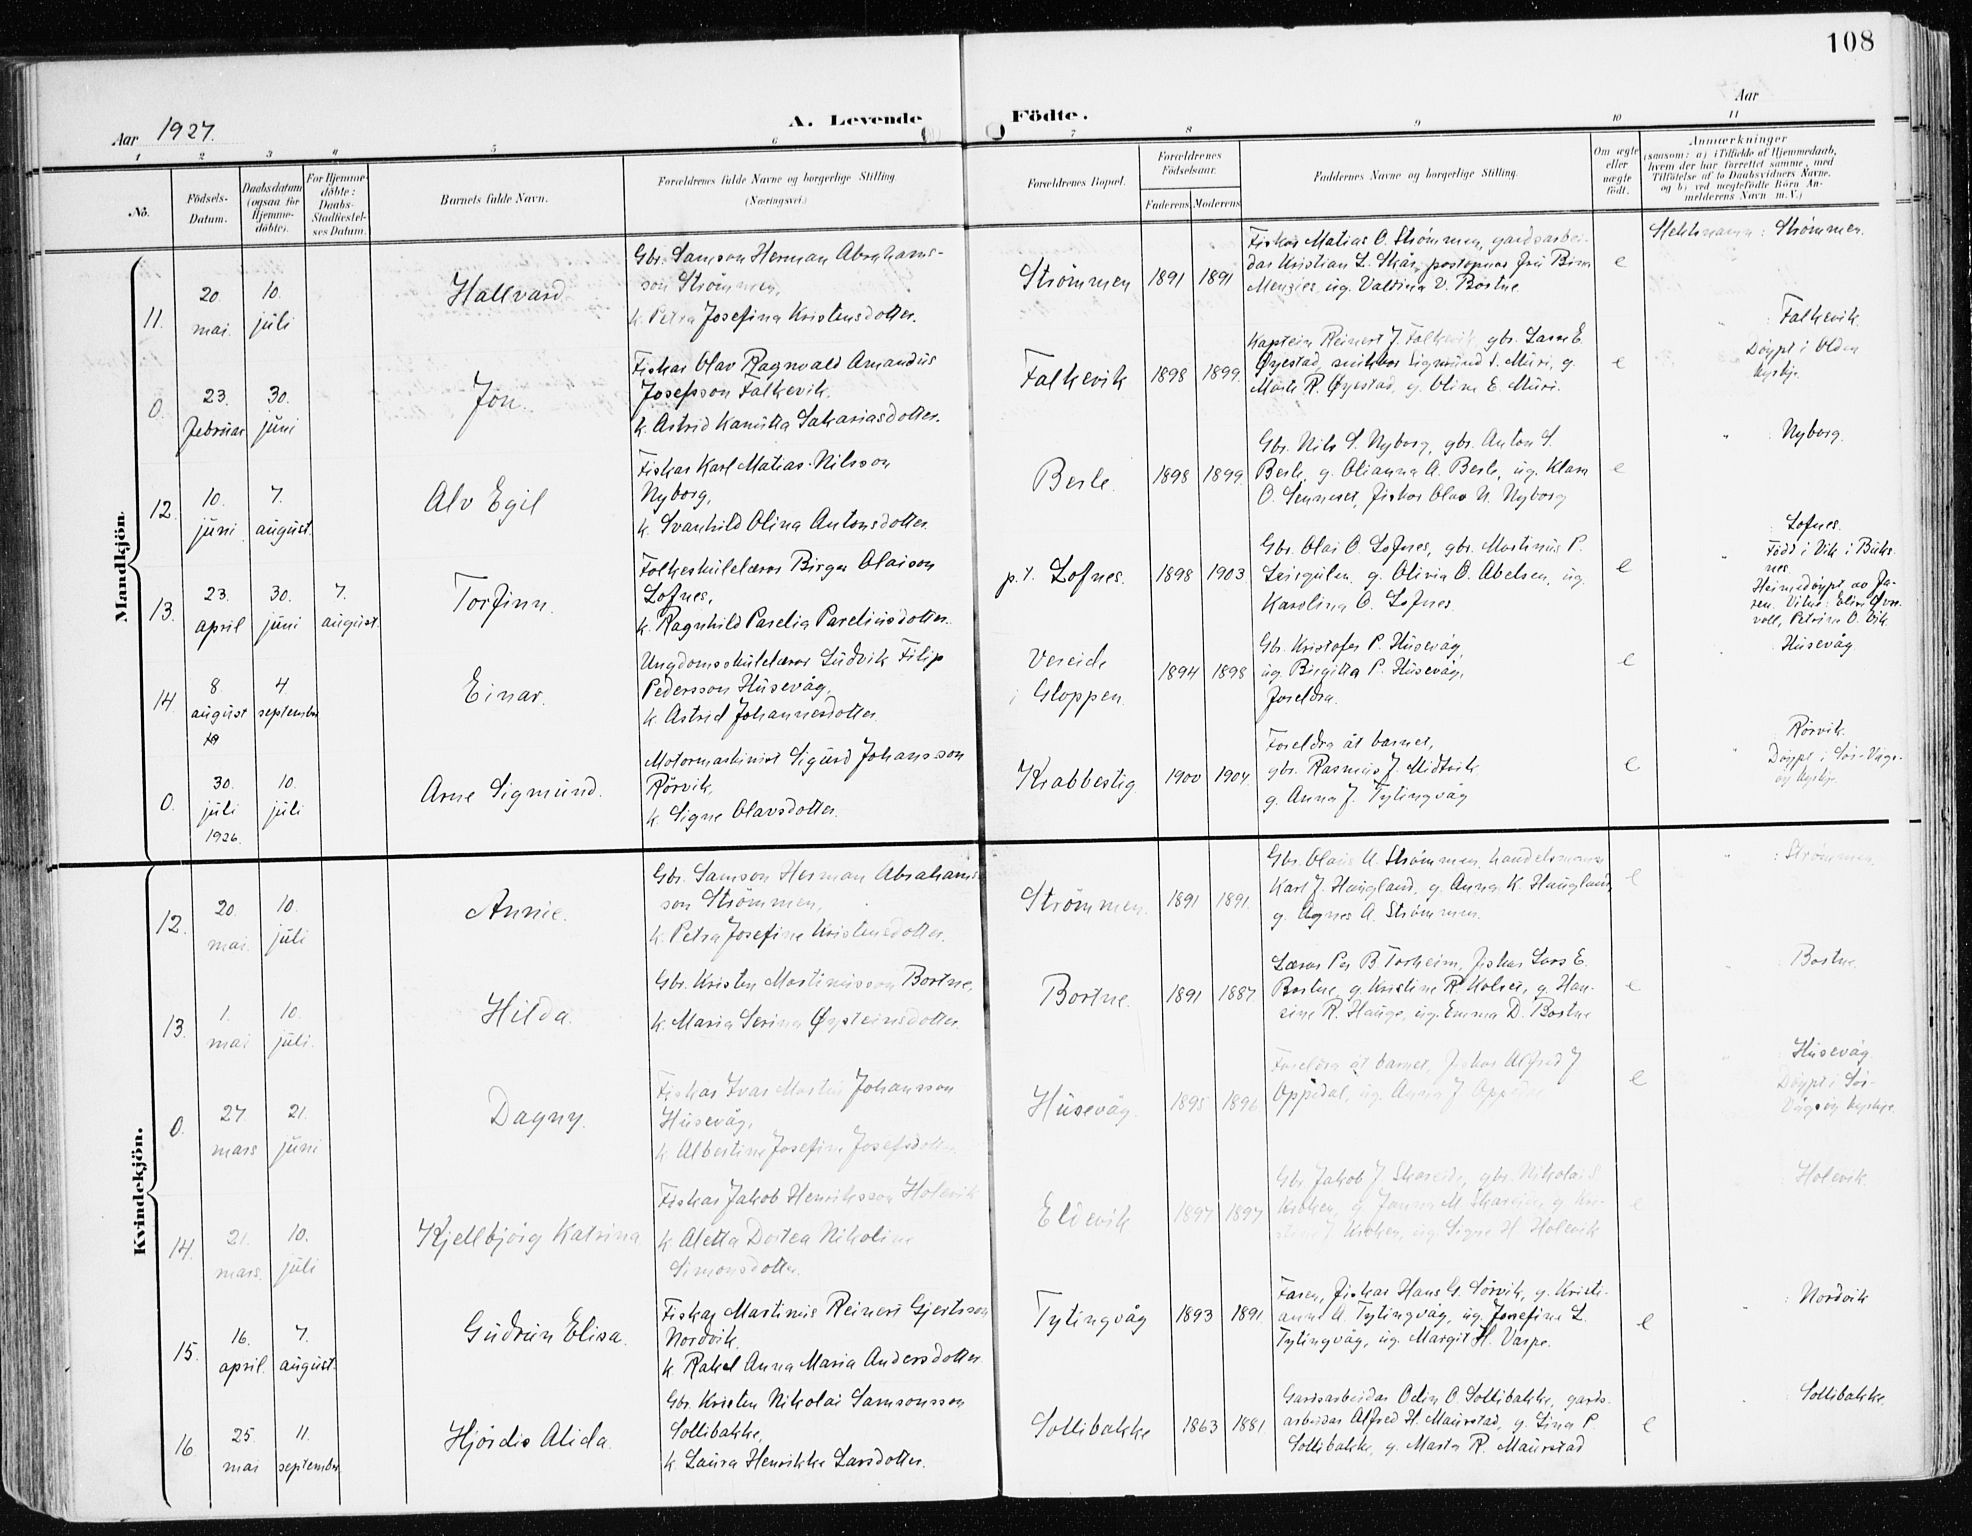 108
Aar 1927.
A. Levende Födte.
Aar
1 2 3 4 5 6 7 8 9 10 11
No.
Födsels-
Datum.
Daabsdatum
(ogsaa for
Hjemme-
döbte).
For Hjemme-
döbte:
Daabs-
Stadfæstel-
ses Datum.
Barnets fulde Navn.
Forældrenes fulde Navne og borgerlige Stilling
(Næringsvei.)
Forældrenes Bopæl.
Forældrenes
Födselsaar.
Faderens Moderens
Faddernes Navne og borgerlige Stilling.
Om ægte
eller
uægte
født.
Anmærkninger
(saasom: a) i Tilfælde af Hjemmedaab,
hvem der har forrettet samme, med
Tilföielse af to Daabsvidners Navne,
og b) ved uægtefödte Börn An-
melderens Navn m.V.)
Mandkjön.
11.
20
mai.
10.
juli
Hallvard
Gbr. Samson Herman Abrahams-
son Strømmen,
k. Petra Josefina Kristensdotter.
Strømmen
1891 1891
Fiskar Matias O. Strømmen, gardsarbei-
dar Kristian L. Skår, postopnar frú
ug. Valdina V. Bortne
e
: Strømmen.
0.
23.
februar
30.
juni
Jon.
Fiskar Olav Ragnvald Amandus
Josefsson Falkevik,
k. Astrid Kamitta Sakariasdotter.
Falkevik
1898 1899.
Kaptein Reinert J. Falkevik, gbr. Lasse E.
Øyestad, Sigmund S. Muri, g.
Marte R. Øyestad, g. Oline E. Muri.
e
" : Falkevik.
Døypt i Olden
kyrkje.
12.
10.
juni
7.
august.
Alv Egil
Fiskar Karl Matias Nilsson
Nyborg,
k. Svanhild Olina Antonsdotter.
Berle.
1898 1899.
Gbr. Nils S. Nyborg, gbr. Anton S.
Berle, g. Olianna A. Berle, ug. Klara
O. Senneset, fiskar Olav N. Nyborg
e
" : Nyborg.
13.
23.
april
30.
juni
7.
august.
Torfinn.
Folkeskulelærar Birger Olaison
Lofnes,
k. Ragnhild Parelia Pareliusdotter.
p.t. Lofnes.
1898 1903.
Gbr. Olai O. Lofnes, gbr. Martinus P.
Leirgulen, g. Olivia O. Abelsen, ug.
Karolina O. Lofnes.
e
" : Lofnes.
Født i Vik i Buks-
nes.
Heimedøypt av Fa-
ren. Vitne: Elise Øvre-
voll, Petrine O. Vik.
14.
8.
august
4
september
Einar.
Ungdomsskulelærar Ludvik Filip
Pedersson Husevåg,
k. Astrid Johannesdotter.
Vereide
i Gloppen
1894 1898
Gbr. Kristofer P. Husevåg,
ug. Birgitta P. Husevåg,
foreldra.
e
" : Husevåg
0.
30.
juli
1926.
10.
juli
Arne Sigmund.
Motormaskinist Sigurd Johansson
Rørvik,
k. Signe Olavsdotter.
Krabbestig
1900 1904.
Foreldra åt barnet,
gbr. Rasmus J. Midtvik
g. Anna J. Tytingvåg
e
" : Rørvik.
Døypt i Sør-Vågs-
øy kyrkje.
Kvindekjön.
12.
20.
mai.
10.
juli
Annie.
Gbr. Samson Herman Abrahams-
son Strømmen,
k. Petra Josefine Kristensdotter.
Strømmen.
1891 1891.
Gbr. Olais A. Strømmen, handelsmann
Karl J. Haugland, g. Anna K. Haugland,
g. Agnes A. Strømmen.
e
" : Strømmen.
13.
1.
mai
10.
juli.
Hilda.
Gbr. Kristen Martinusson Bortne,
k. Maria Serina Øysteinsdotter.
Bortne.
1891 1887
Lærar Per B. Torheim, fiskar Lars E.
Bortne, g. Kristine R. Kolset, g. Han-
sine R. Hauge, ug. Emma D. Bortne
e
" : Bortne.
0.
27
mars
21.
juni
Dagny.
Fiskar Ivar Martin Johansson
Husevåg,
k. Albertine Josefine Josefsdotter
Husevåg.
1895 1896
Foreldra åt barnet, fiskar Alfred J
Oppedal, ug. Anna J Oppedal
e
" : Husevåg
Døypt i Sør-
Vågsøy kyrkje.
14.
21.
mars.
10.
juli
Kjellbjørg Katrina
Fiskar Jakob Henriksson Holevik
k. Aletta Dortea Nikoline
Simonsdotter.
Eldevik
1897 1897
Gbr. Jakob J. Skareide, gbr. Nikolai S
Kroken, g. M. Skareide, g. Kri-
stine J Kroken, ug. Signe H. Holevik
e
: Holevik
15.
16.
april.
7.
august.
Gudrun Elisa.
Fiskar Martinus Reinert Gjertsson
Nordvik.
k. Rakel Anna Maria Andersdotter
Tytingvåg
1893 1891.
Faren, fiskar Hans G. Sørvik, g. Kristi-
anna A. Tytingvåg, ug. Josefine L.
Tytingvåg, ug. Margit H. Varpe.
e
" : Nordvik
16
25.
mai
11.
september
Hjørdis Alida.
Gbr. Kristen Nikolai Samsonsson
Sollibakke,
k. Laura Henrikke Larsdotter.
Sollibakke
1863 1881.
Gardsarbeidar Odin O. Sollibakke, gards-
arbeidar Alfred H. Maurstad, g. Lina P.
Sollibakke, g. Marta R. Maurstad
e
: Sollibakke.